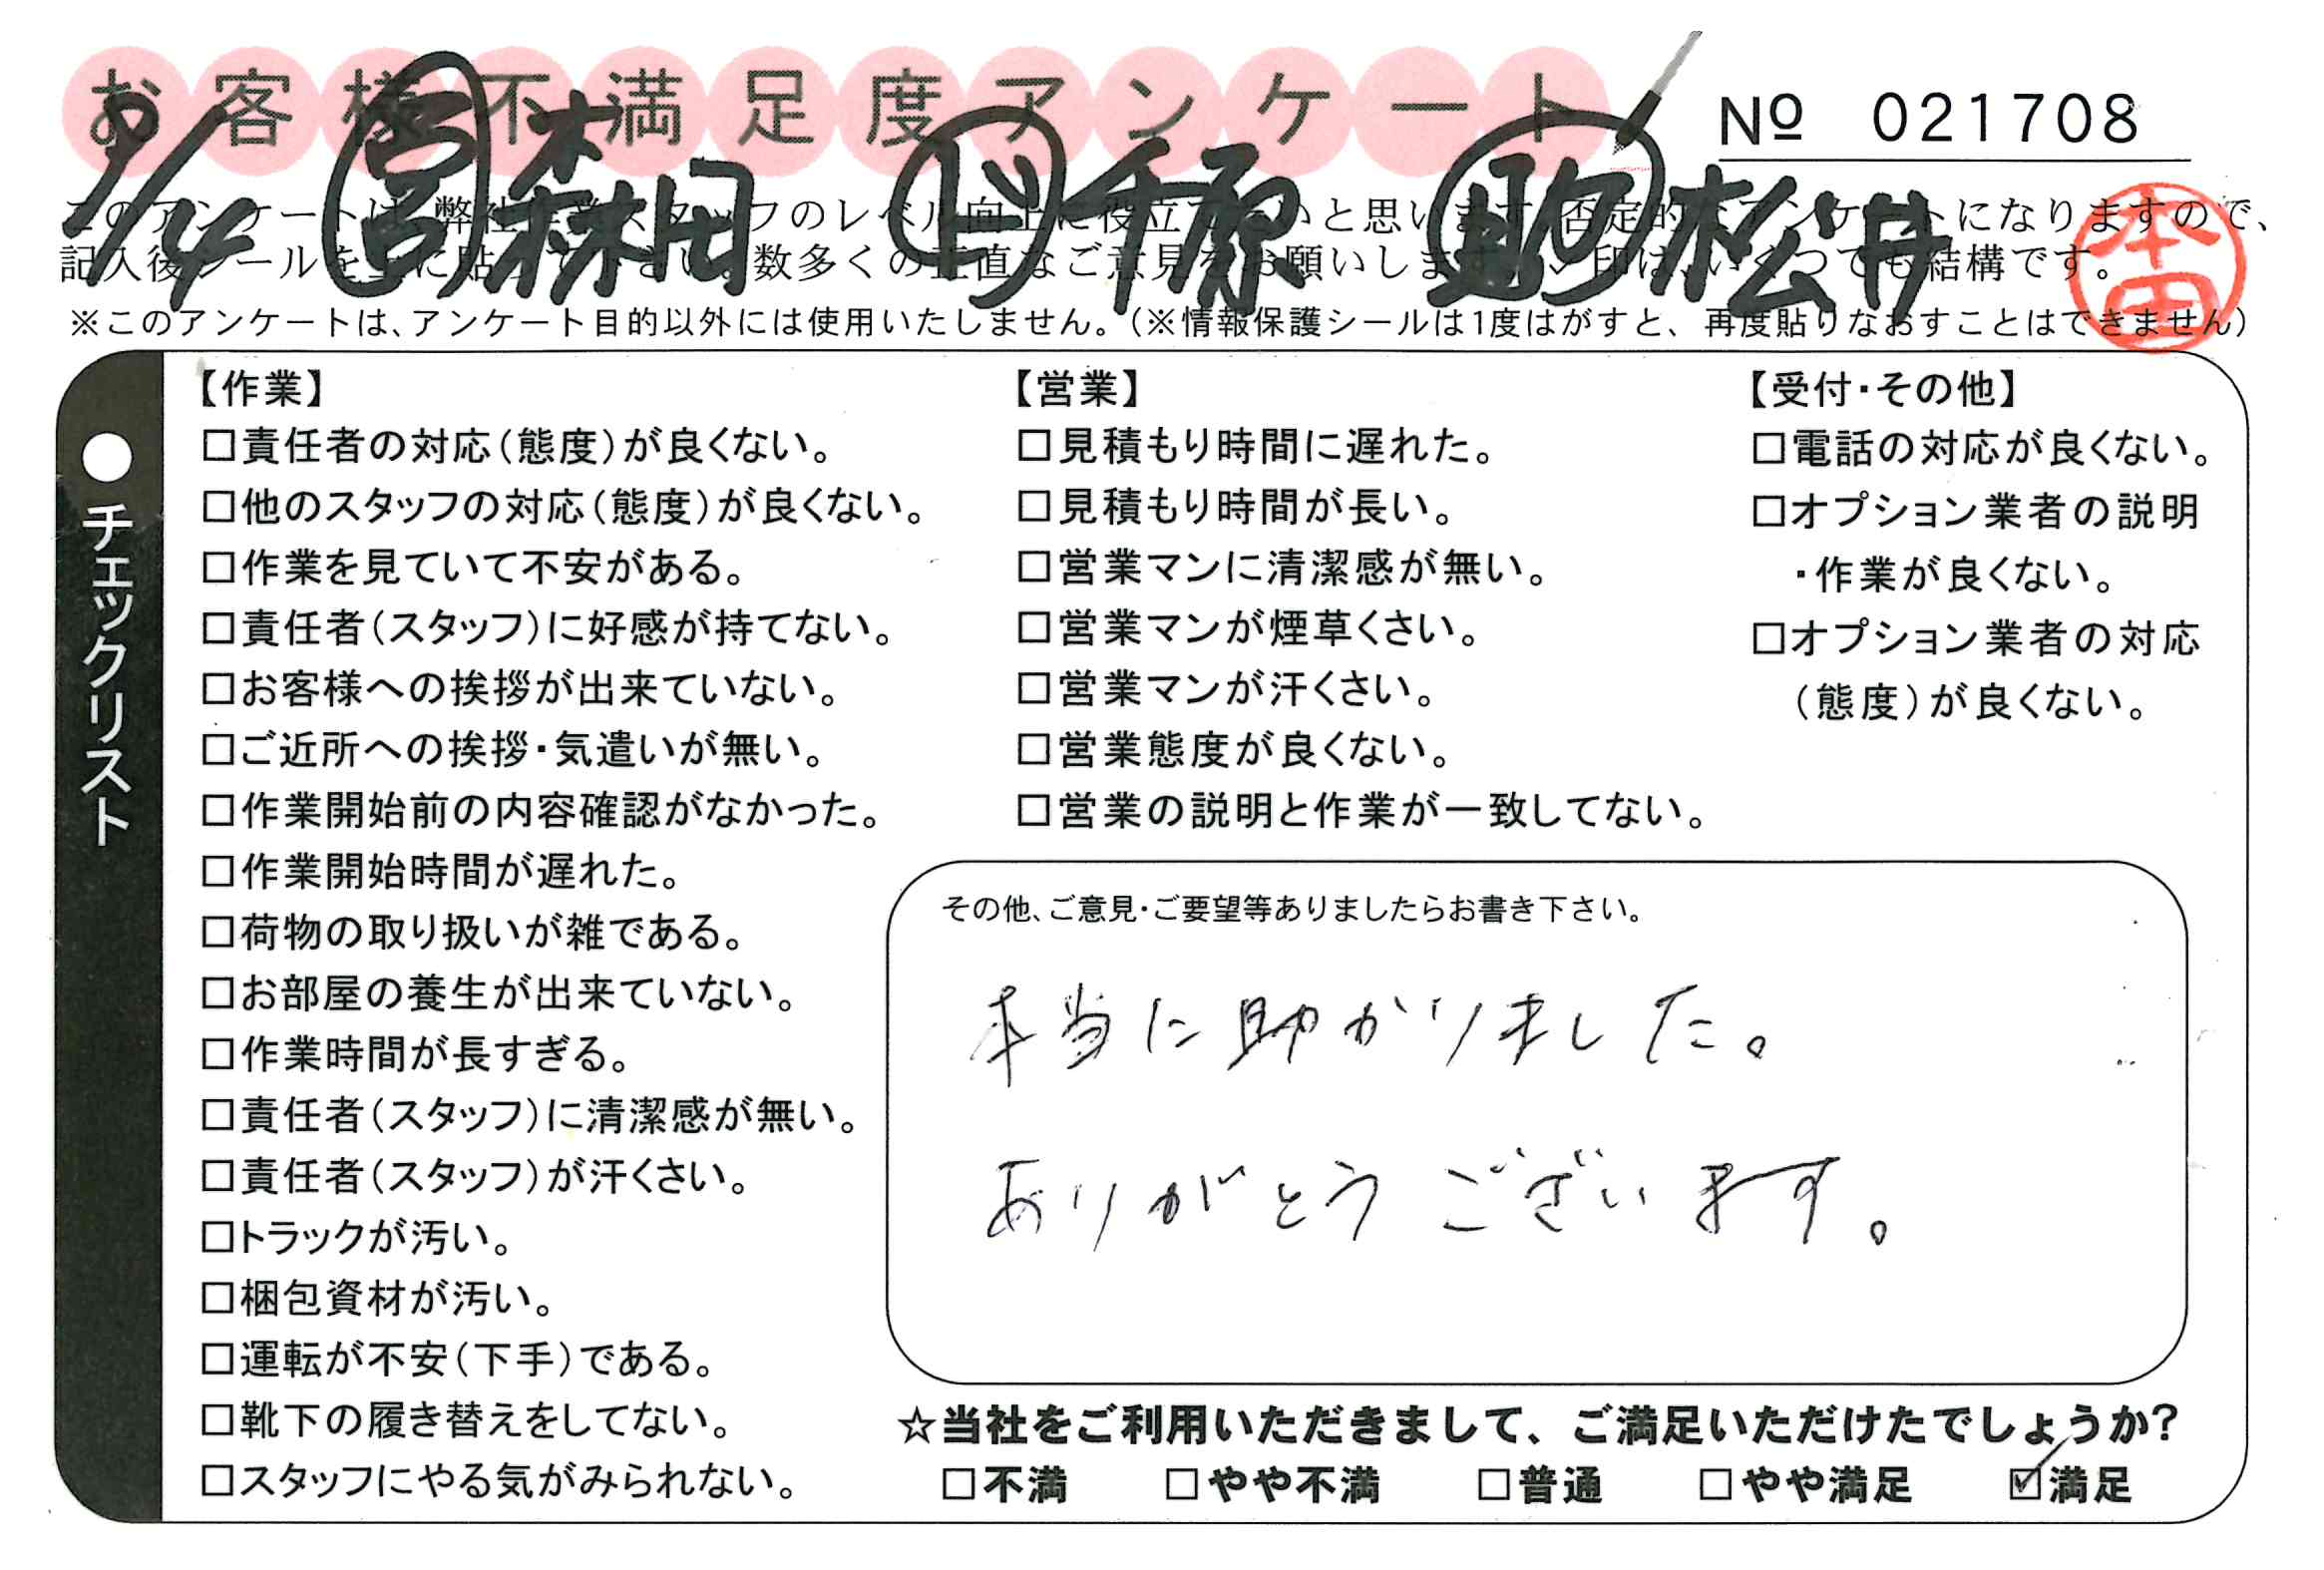 お客様不満足度アンケート
Nº 021708
森田 千原 助 松井
本田
このアンケートは、弊社作業スタッフのレベル向上に役立てたいと思います。否定的なアンケートになりますので、
記入後シールを上に貼って下さい。数多くの正直なご意見をお願いします。✓印は、いくつでも結構です。
※このアンケートは、アンケート目的以外には使用いたしません。(※情報保護シールは1度はがすと、再度貼りなおすことはできません)
●チェックリスト
【作業】
□責任者の対応(態度)が良くない。
□他のスタッフの対応(態度)が良くない。
□作業を見ていて不安がある。
□責任者(スタッフ)に好感が持てない。
□お客様への挨拶が出来ていない。
□ご近所への挨拶・気遣いが無い。
□作業開始前の内容確認がなかった。
□作業開始時間が遅れた。
□荷物の取り扱いが雑である。
□お部屋の養生が出来ていない。
□作業時間が長すぎる。
□責任者(スタッフ)に清潔感が無い。
□責任者(スタッフ)が汗くさい。
□トラックが汚い。
□梱包資材が汚い。
□運転が不安(下手)である。
□靴下の履き替えをしてない。
□スタッフにやる気がみられない。
【営業】
□見積もり時間に遅れた。
□見積もり時間が長い。
□営業マンに清潔感が無い。
□営業マンが煙草くさい。
□営業マンが汗くさい。
□営業態度が良くない。
□営業の説明と作業が一致してない。
【受付・その他】
□電話の対応が良くない。
□オプション業者の説明
・作業が良くない。
□オプション業者の対応
(態度)が良くない。
その他、ご意見・ご要望等ありましたらお書き下さい。
本当に助かりました。
ありがとうございます。
☆当社をご利用いただきまして、ご満足いただけたでしょうか?
□不満 □やや不満 □普通 □やや満足 ☑満足